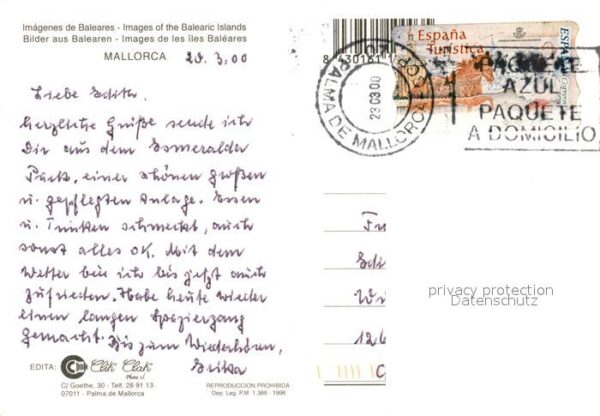 Imágenes de Baleares - Images of the Balearic Islands
Bilder aus Balearen - Images de les îles Baléares
MALLORCA 20. 3. 00
Liebe Edith,
herzliche Grüße sende ich
Dir aus dem Esmeralda
Park, einer schönen großen
u. gepflegten Anlage. Essen
u. Trinken schmeckt, auch
sonst alles OK. Mit dem
Wetter bin ich bis jetzt auch
zufrieden. Habe heute wieder
einen langen Spaziergang
gemacht. Bis zum Wiederhören,
Erika
EDITA: Clik Clak
C/ Goethe, 30 - Telf. 28 91 13
07011 - Palma de Mallorca
REPRODUCCION PROHIBIDA
Dep. Leg. P.M. 1.388 - 1996
España
Turística
ESPAÑA
Correos
PALMA DE MALLORCA
23 03 00
PAQUETE
AZUL
PAQUETE
A DOMICILIO
Fr
Edi
Wi
126
privacy protection
Datenschutz